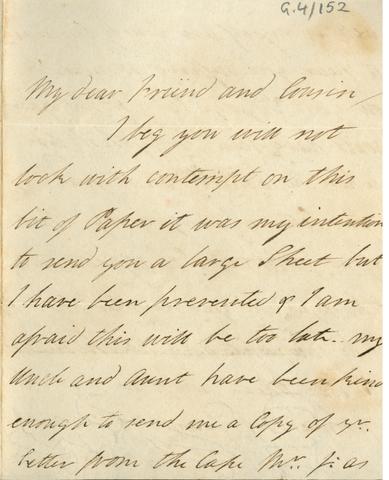 G.4/152
My dear Friend and Cousin
I beg you will not
look with contempt on this
bit of Paper it was my intention
to send you a large Sheet but
I have been prevented & I am
afraid this will be too late. my
Uncle and Aunt have been kind
enough to send me a Copy of yr.
letter from the Cape Mr. as